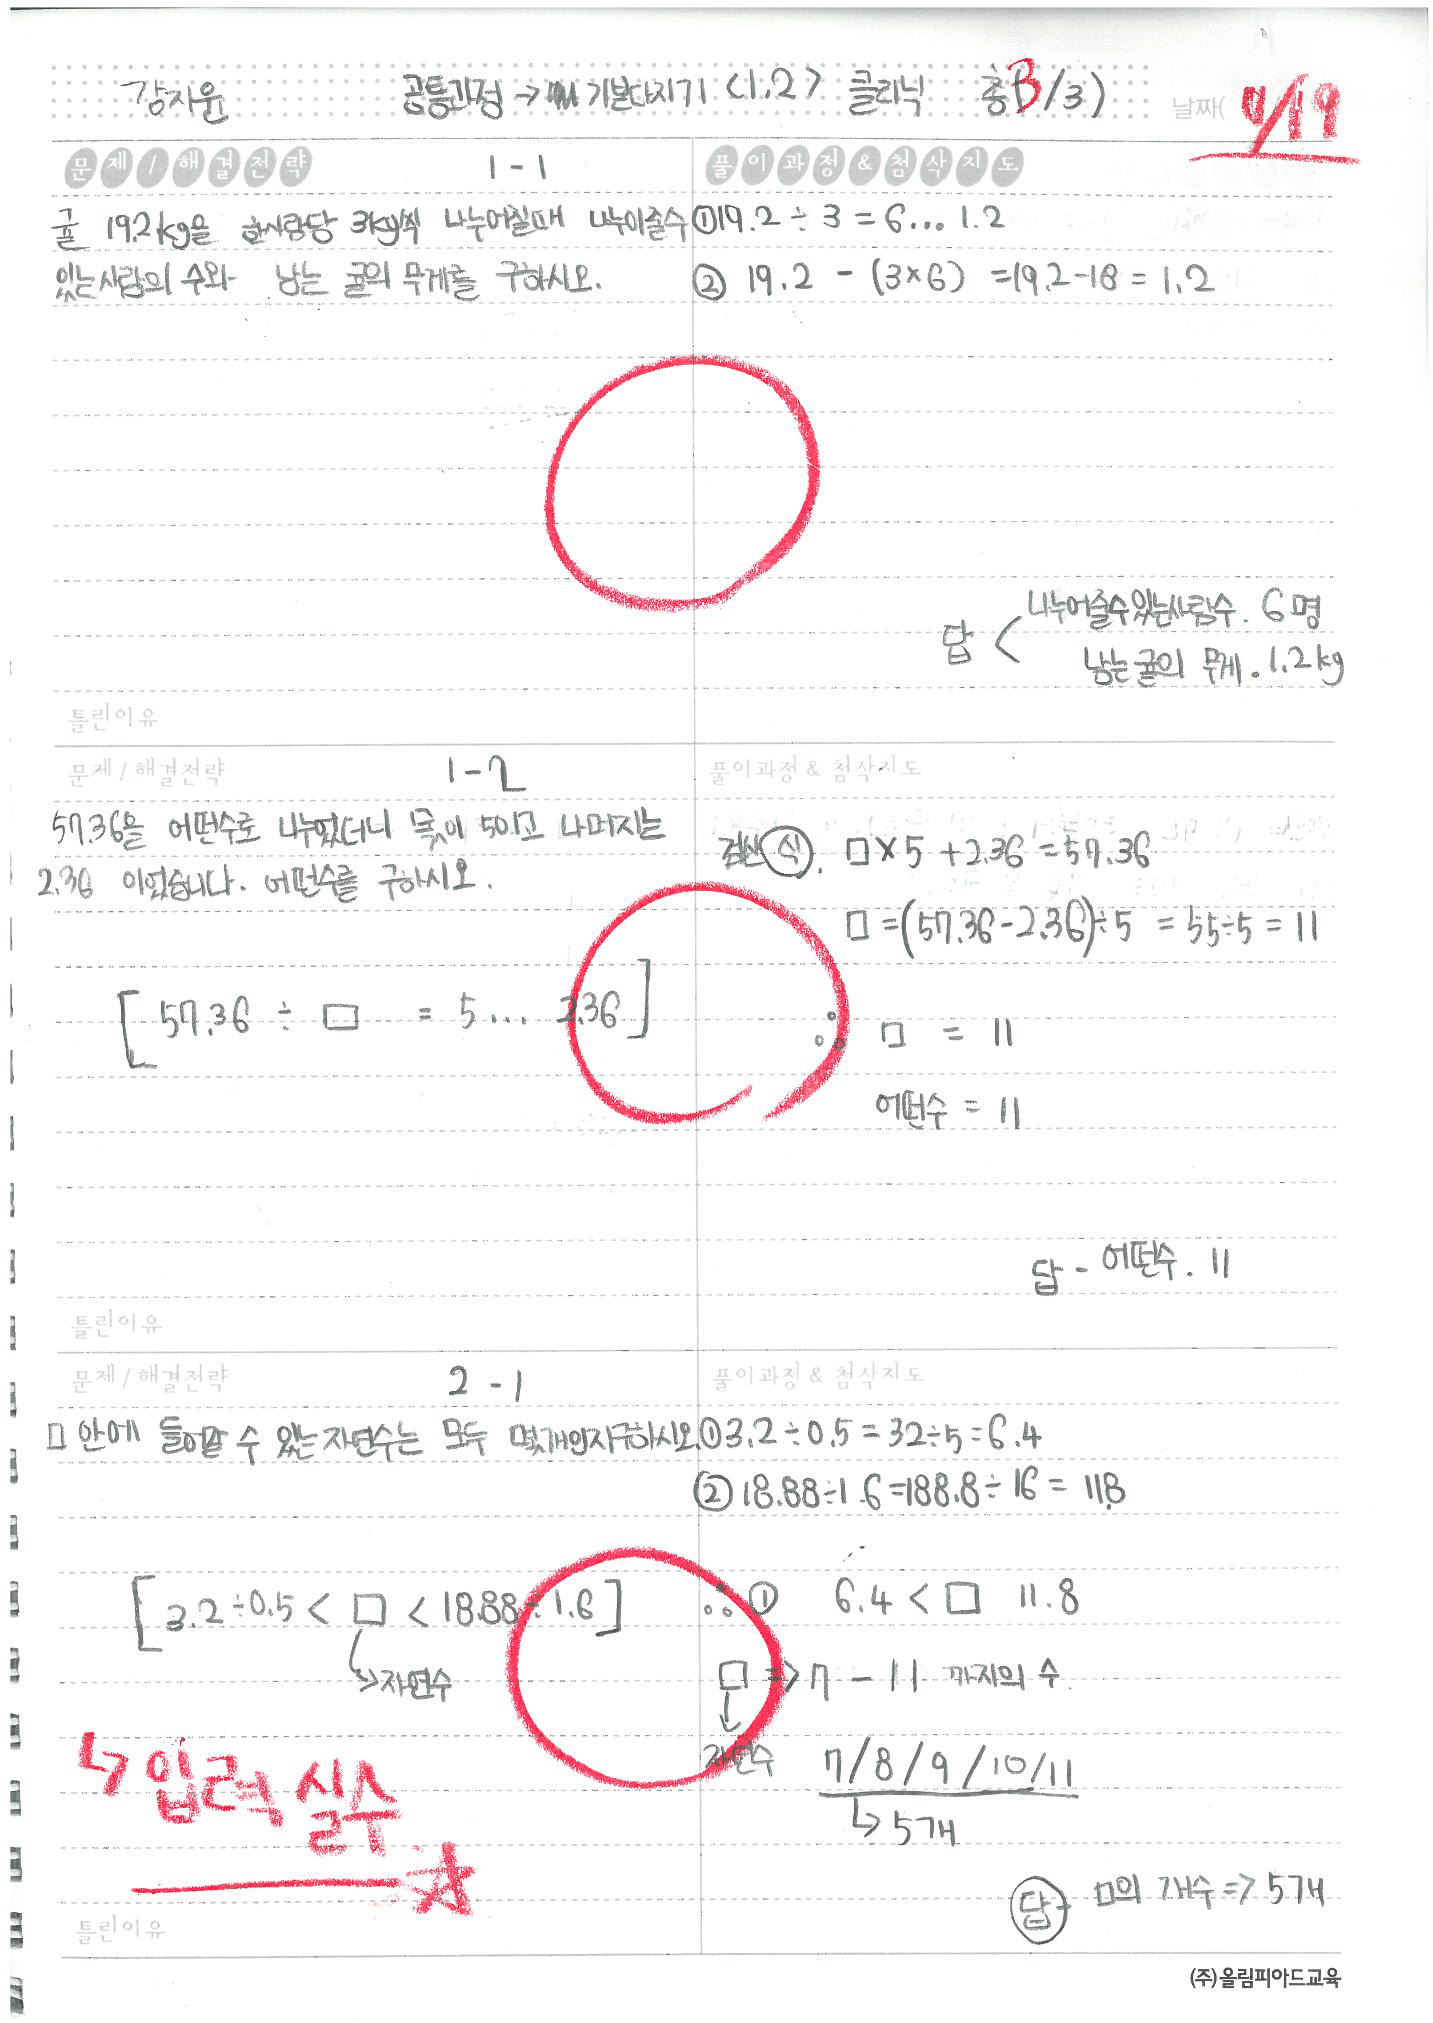 강지윤 공통과정 → 기본다지기 <1.2> 클리닉 총(3/3) 날짜( /19
문제/해결전략 1-1 풀이과정&첨삭지도
귤 19.2kg을 한사람당 3kg씩 나누어줄때 나누어줄수
있는 사람의 수와 남는 귤의 무게를 구하시오.
① 19.2 ÷ 3 = 6... 1.2
② 19.2 - (3×6) =19.2-18 = 1.2
답 < 나누어줄수있는사람수. 6명
남는귤의 무게. 1.2kg
틀린이유
문제/해결전략 1-2 풀이과정 & 첨삭지도
57.36을 어떤수로 나누었더니 몫이 5이고 나머지는
2.36 이었습니다. 어떤수를 구하시오.
[ 57.36 ÷ □ = 5 ... 2.36 ]
검산식. □×5 +2.36 =57.36
□ =(57.36-2.36)÷5 = 55÷5 = 11
∴ □ = 11
어떤수 = 11
답 - 어떤수. 11
틀린이유
문제/해결전략 2-1 풀이과정 & 첨삭지도
□ 안에 들어갈 수 있는 자연수는 모두 몇개인지구하시오.
[ 3.2÷0.5 < □ < 18.88÷1.6 ]
→자연수
↳ 입력 실수
☆
① 3.2÷0.5 = 32÷5 = 6.4
② 18.88÷1.6 =188.8÷16 = 11.8
∴ ① 6.4 < □ 11.8
□ => 7 - 11 까지의 수
자연수 7/8/9/10/11
↳ 5개
답- □의 개수 => 5개
틀린이유
(주)올림피아드교육